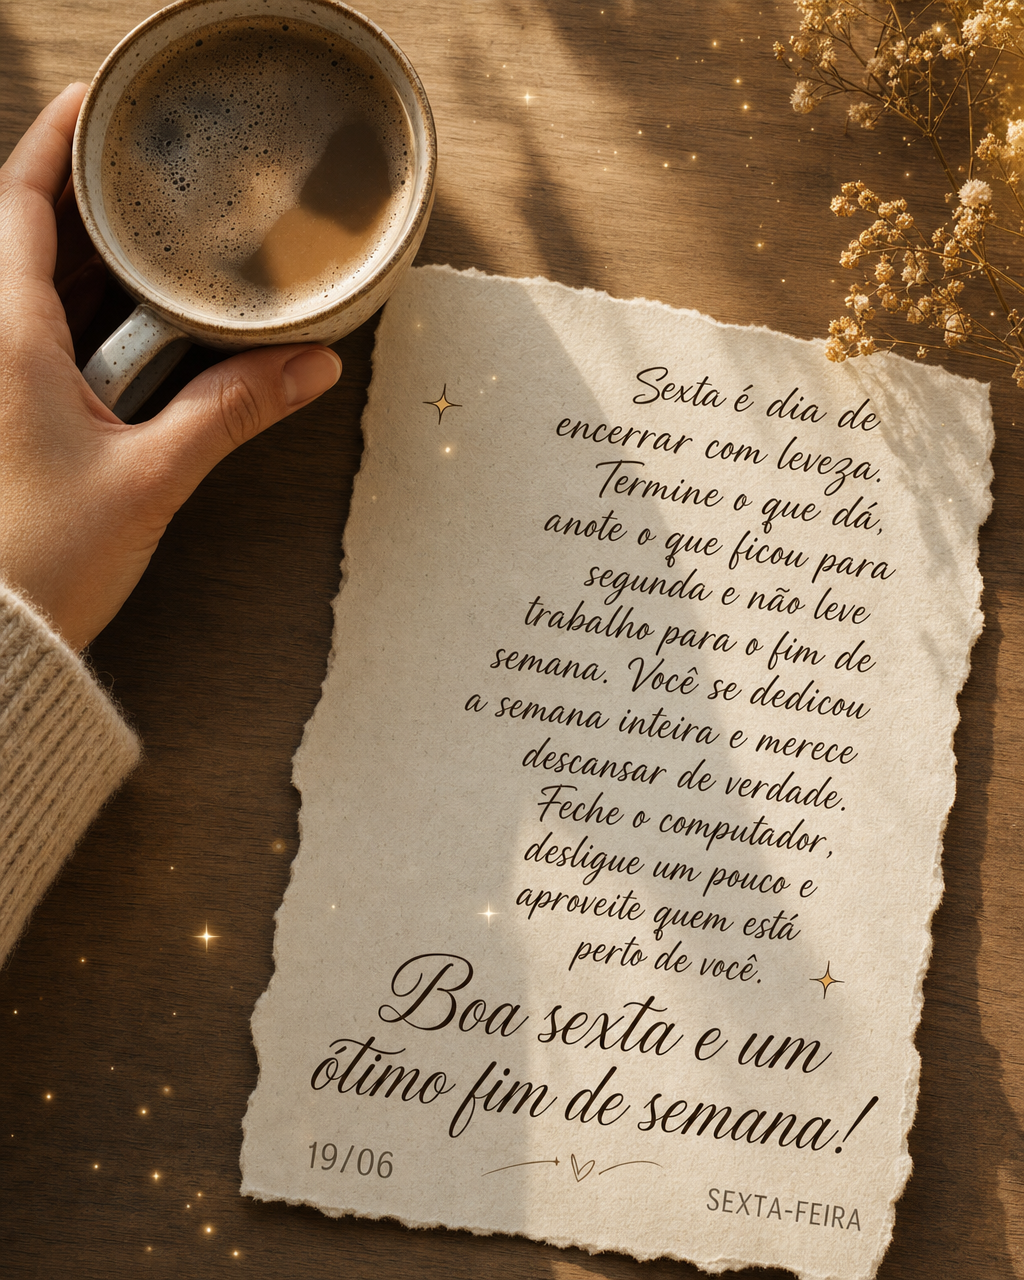 Sexta é dia de
encerrar com leveza.
Termine o que dá,
anote o que ficou para
segunda e não leve
trabalho para o fim de
semana. Você se dedicou
a semana inteira e merece
descansar de verdade.
Feche o computador,
desligue um pouco e
aproveite quem está
perto de você.
Boa sexta e um
ótimo fim de semana!
19/06
SEXTA-FEIRA